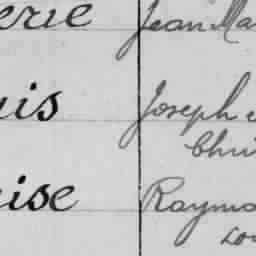 erie Jean Ma
uis Joseph
Chri
ise Raymo
Lou